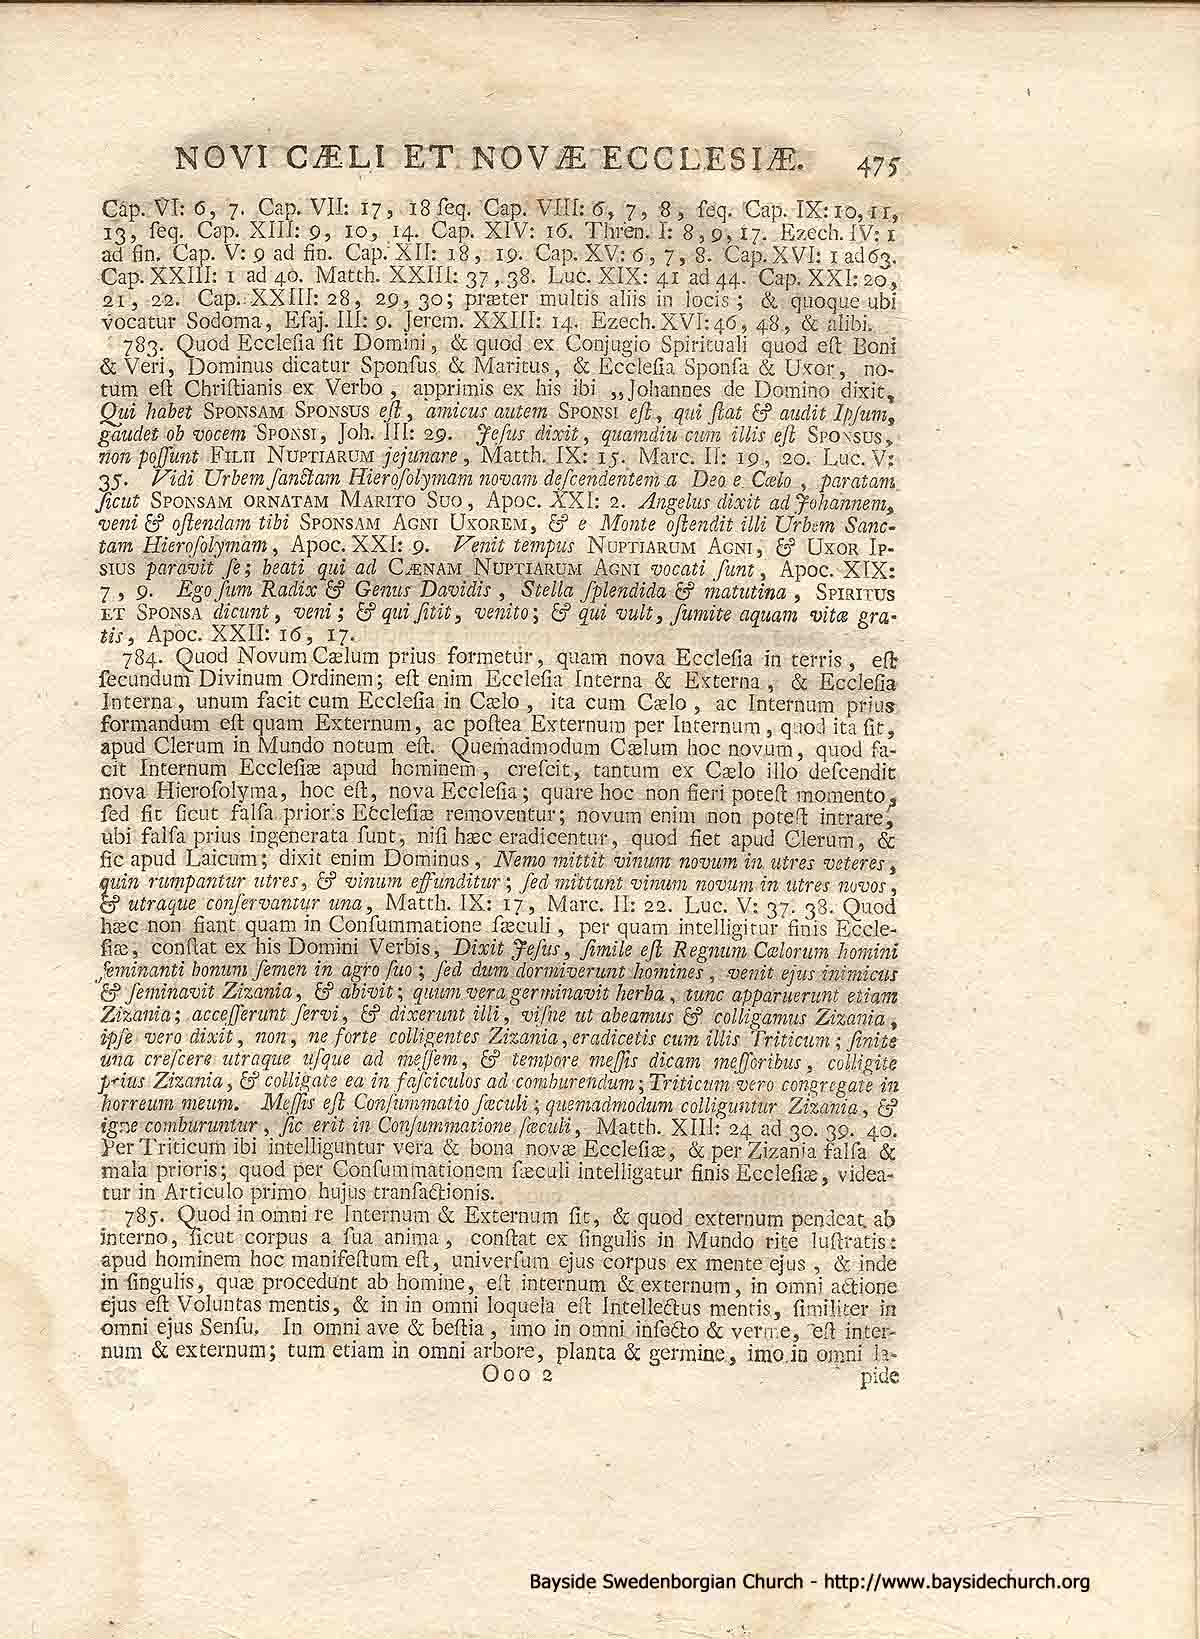 NOVI CÆLI ET NOVÆ ECCLESIÆ. 475
Cap. VI: 6, 7. Cap. VII: 17, 18 ſeq. Cap. VIII: 6, 7, 8, ſeq. Cap. IX: 10, 11,
13, ſeq. Cap. XIII: 9, 10, 14. Cap. XIV: 16. Thren. I: 8, 9, 17. Ezech. IV: 1
ad fin. Cap. V: 9 ad fin. Cap. XII: 18, 19. Cap. XV: 6, 7, 8. Cap. XVI: 1 ad 63.
Cap. XXIII: 1 ad 40. Matth. XXIII: 37, 38. Luc. XIX: 41 ad 44. Cap. XXI: 20,
21, 22. Cap. XXIII: 28, 29, 30; præter multis aliis in locis; & quoque ubi
vocatur Sodoma, Eſaj. III: 9. Jerem. XXIII: 14. Ezech. XVI: 46, 48, & alibi.
783. Quod Eccleſia ſit Domini, & quod ex Conjugio Spirituali quod eſt Boni
& Veri, Dominus dicatur Sponſus & Maritus, & Eccleſia Sponſa & Uxor, no-
tum eſt Chriſtianis ex Verbo, apprimis ex his ibi „Johannes de Domino dixit,
Qui habet SPONSAM SPONSUS eſt, amicus autem SPONSI eſt, qui ſtat & audit Ipſum,
gaudet ob vocem SPONSI, Joh. III: 29. Jeſus dixit, quamdiu cum illis eſt SPONSUS,
non poſſunt FILII NUPTIARUM jejunare, Matth. IX: 15. Marc. II: 19, 20. Luc. V:
35. Vidi Urbem ſanctam Hieroſolymam novam deſcendentem a Deo e Cælo, paratam
ſicut SPONSAM ORNATAM MARITO SUO, Apoc. XXI: 2. Angelus dixit ad Johannem,
veni & oſtendam tibi SPONSAM AGNI UXOREM, & e Monte oſtendit illi Urbem Sanc-
tam Hieroſolymam, Apoc. XXI: 9. Venit tempus NUPTIARUM AGNI, & UXOR IP-
SIUS paravit ſe; beati qui ad CÆNAM NUPTIARUM AGNI vocati ſunt, Apoc. XIX:
7, 9. Ego ſum Radix & Genus Davidis, Stella ſplendida & matutina, SPIRITUS
ET SPONSA dicunt, veni; & qui ſitit, venito; & qui vult, ſumite aquam vitæ gra-
tis, Apoc. XXII: 16, 17.
784. Quod Novum Cælum prius formetur, quam nova Eccleſia in terris, eſt
ſecundum Divinum Ordinem; eſt enim Eccleſia Interna & Externa, & Eccleſia
Interna, unum facit cum Eccleſia in Cælo, ita cum Cælo, ac Internum prius
formandum eſt quam Externum, ac poſtea Externum per Internum, quod ita ſit,
apud Clerum in Mundo notum eſt. Quemadmodum Cælum hoc novum, quod fa-
cit Internum Eccleſiæ apud hominem, creſcit, tantum ex Cælo illo deſcendit
nova Hieroſolyma, hoc eſt, nova Eccleſia; quare hoc non fieri poteſt momento,
ſed fit ſicut falſa prioris Eccleſiæ removentur; novum enim non poteſt intrare,
ubi falſa prius ingenerata ſunt, niſi hæc eradicentur, quod fiet apud Clerum, &
ſic apud Laicum; dixit enim Dominus, Nemo mittit vinum novum in utres veteres,
quin rumpantur utres, & vinum effunditur; ſed mittunt vinum novum in utres novos,
& utraque conſervantur una, Matth. IX: 17, Marc. II: 22. Luc. V: 37. 38. Quod
hæc non fiant quam in Conſummatione ſæculi, per quam intelligitur finis Eccle-
ſiæ, conſtat ex his Domini Verbis, Dixit Jeſus, ſimile eſt Regnum Cælorum homini
ſeminanti bonum ſemen in agro ſuo; ſed dum dormiverunt homines, venit ejus inimicus
& ſeminavit Zizania, & abivit; quum vera germinavit herba, tunc apparuerunt etiam
Zizania; acceſſerunt ſervi, & dixerunt illi, viſne ut abeamus & colligamus Zizania,
ipſe vero dixit, non, ne forte colligentes Zizania, eradicetis cum illis Triticum; ſinite
una creſcere utraque uſque ad meſſem, & tempore meſſis dicam meſſoribus, colligite
prius Zizania, & colligate ea in faſciculos ad comburendum; Triticum vero congregate in
horreum meum. Meſſis eſt Conſummatio ſæculi; quemadmodum colliguntur Zizania, &
igne comburuntur, ſic erit in Conſummatione ſæculi, Matth. XIII: 24 ad 30. 39. 40.
Per Triticum ibi intelliguntur vera & bona novæ Eccleſiæ, & per Zizania falſa &
mala prioris; quod per Conſummationem ſæculi intelligatur finis Eccleſiæ, videa-
tur in Articulo primo hujus tranſactionis.
785. Quod in omni re Internum & Externum ſit, & quod externum pendeat ab
interno, ſicut corpus a ſua anima, conſtat ex ſingulis in Mundo rite luſtratis:
apud hominem hoc manifeſtum eſt, univerſum ejus corpus ex mente ejus, & inde
in ſingulis, quæ procedunt ab homine, eſt internum & externum, in omni actione
ejus eſt Voluntas mentis, & in in omni loquela eſt Intellectus mentis, ſimiliter in
omni ejus Senſu. In omni ave & beſtia, imo in omni inſecto & verme, eſt inter-
num & externum; tum etiam in omni arbore, planta & germine, imo in omni la-
Ooo 2 pide
Bayside Swedenborgian Church - http://www.baysidechurch.org